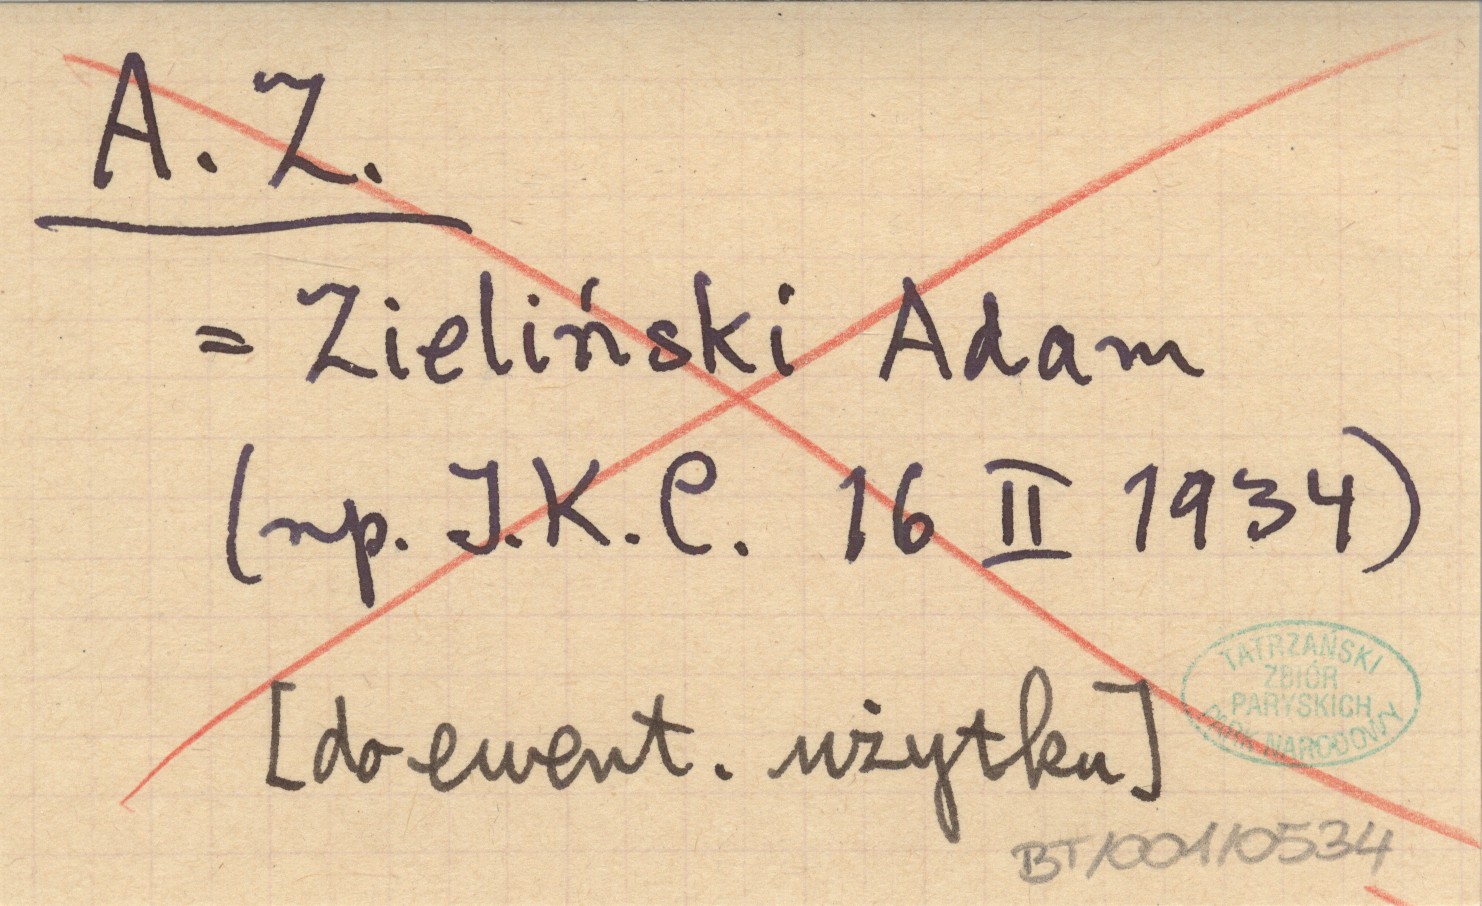 A. Z.
= Zieliński Adam
(np. I.K.C. 16 II 1934)
[do ewent. użytku]
TATRZAŃSKI
ZBIÓR
PARYSKICH
NARODOWY
BT/001/0534